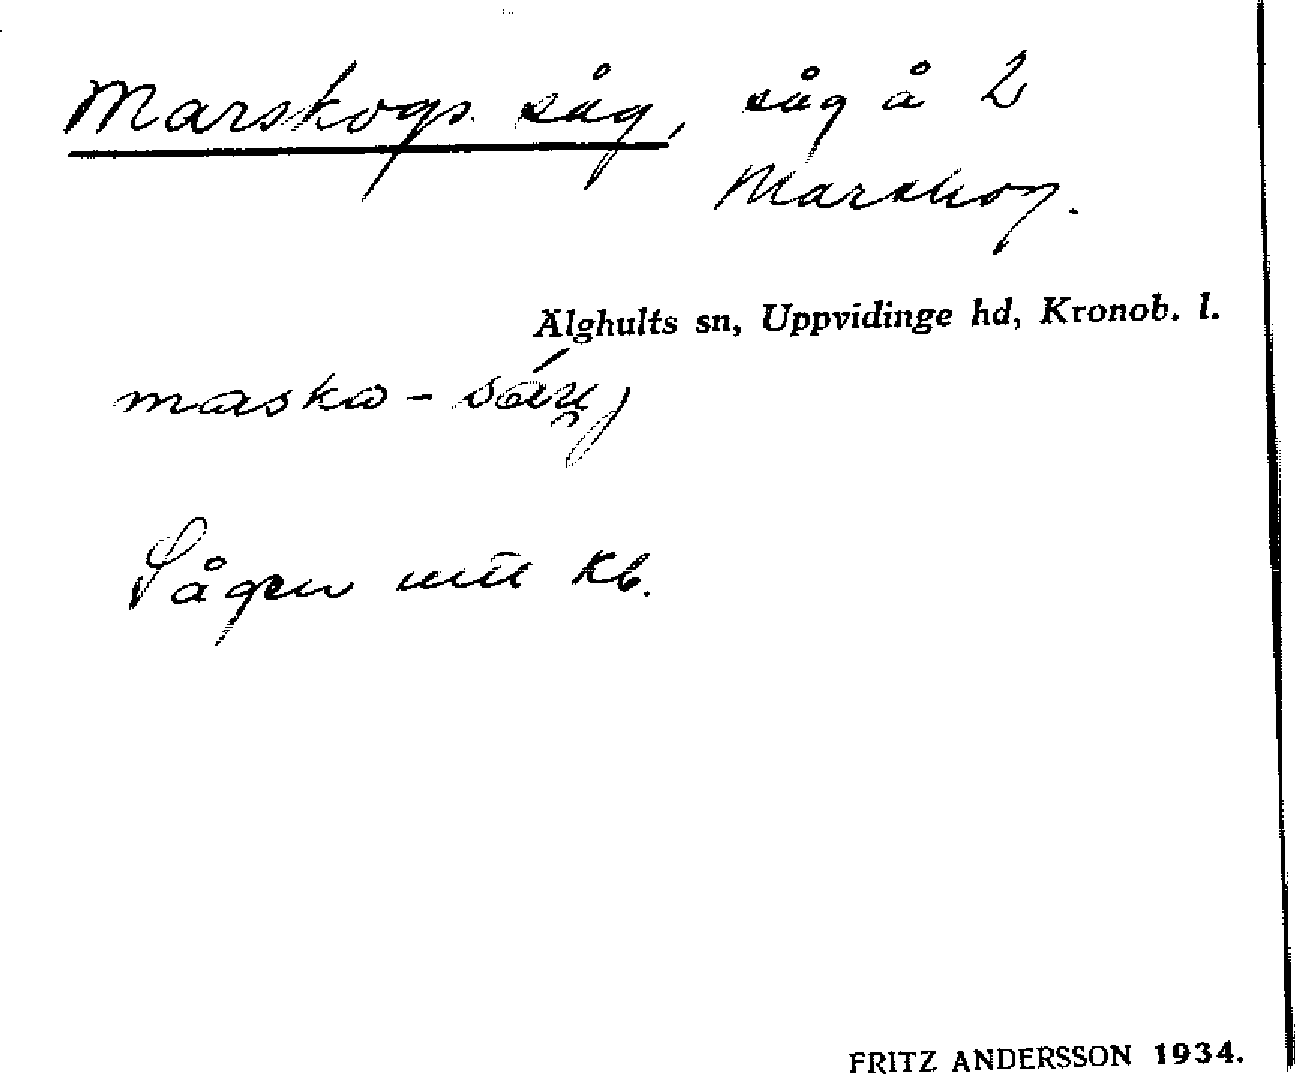 Marskogs såg, såg å 2
Marskog.
Älghults sn, Uppvidinge hd, Kronob. l.
Sågen utu kb.
FRITZ ANDERSSON 1934.